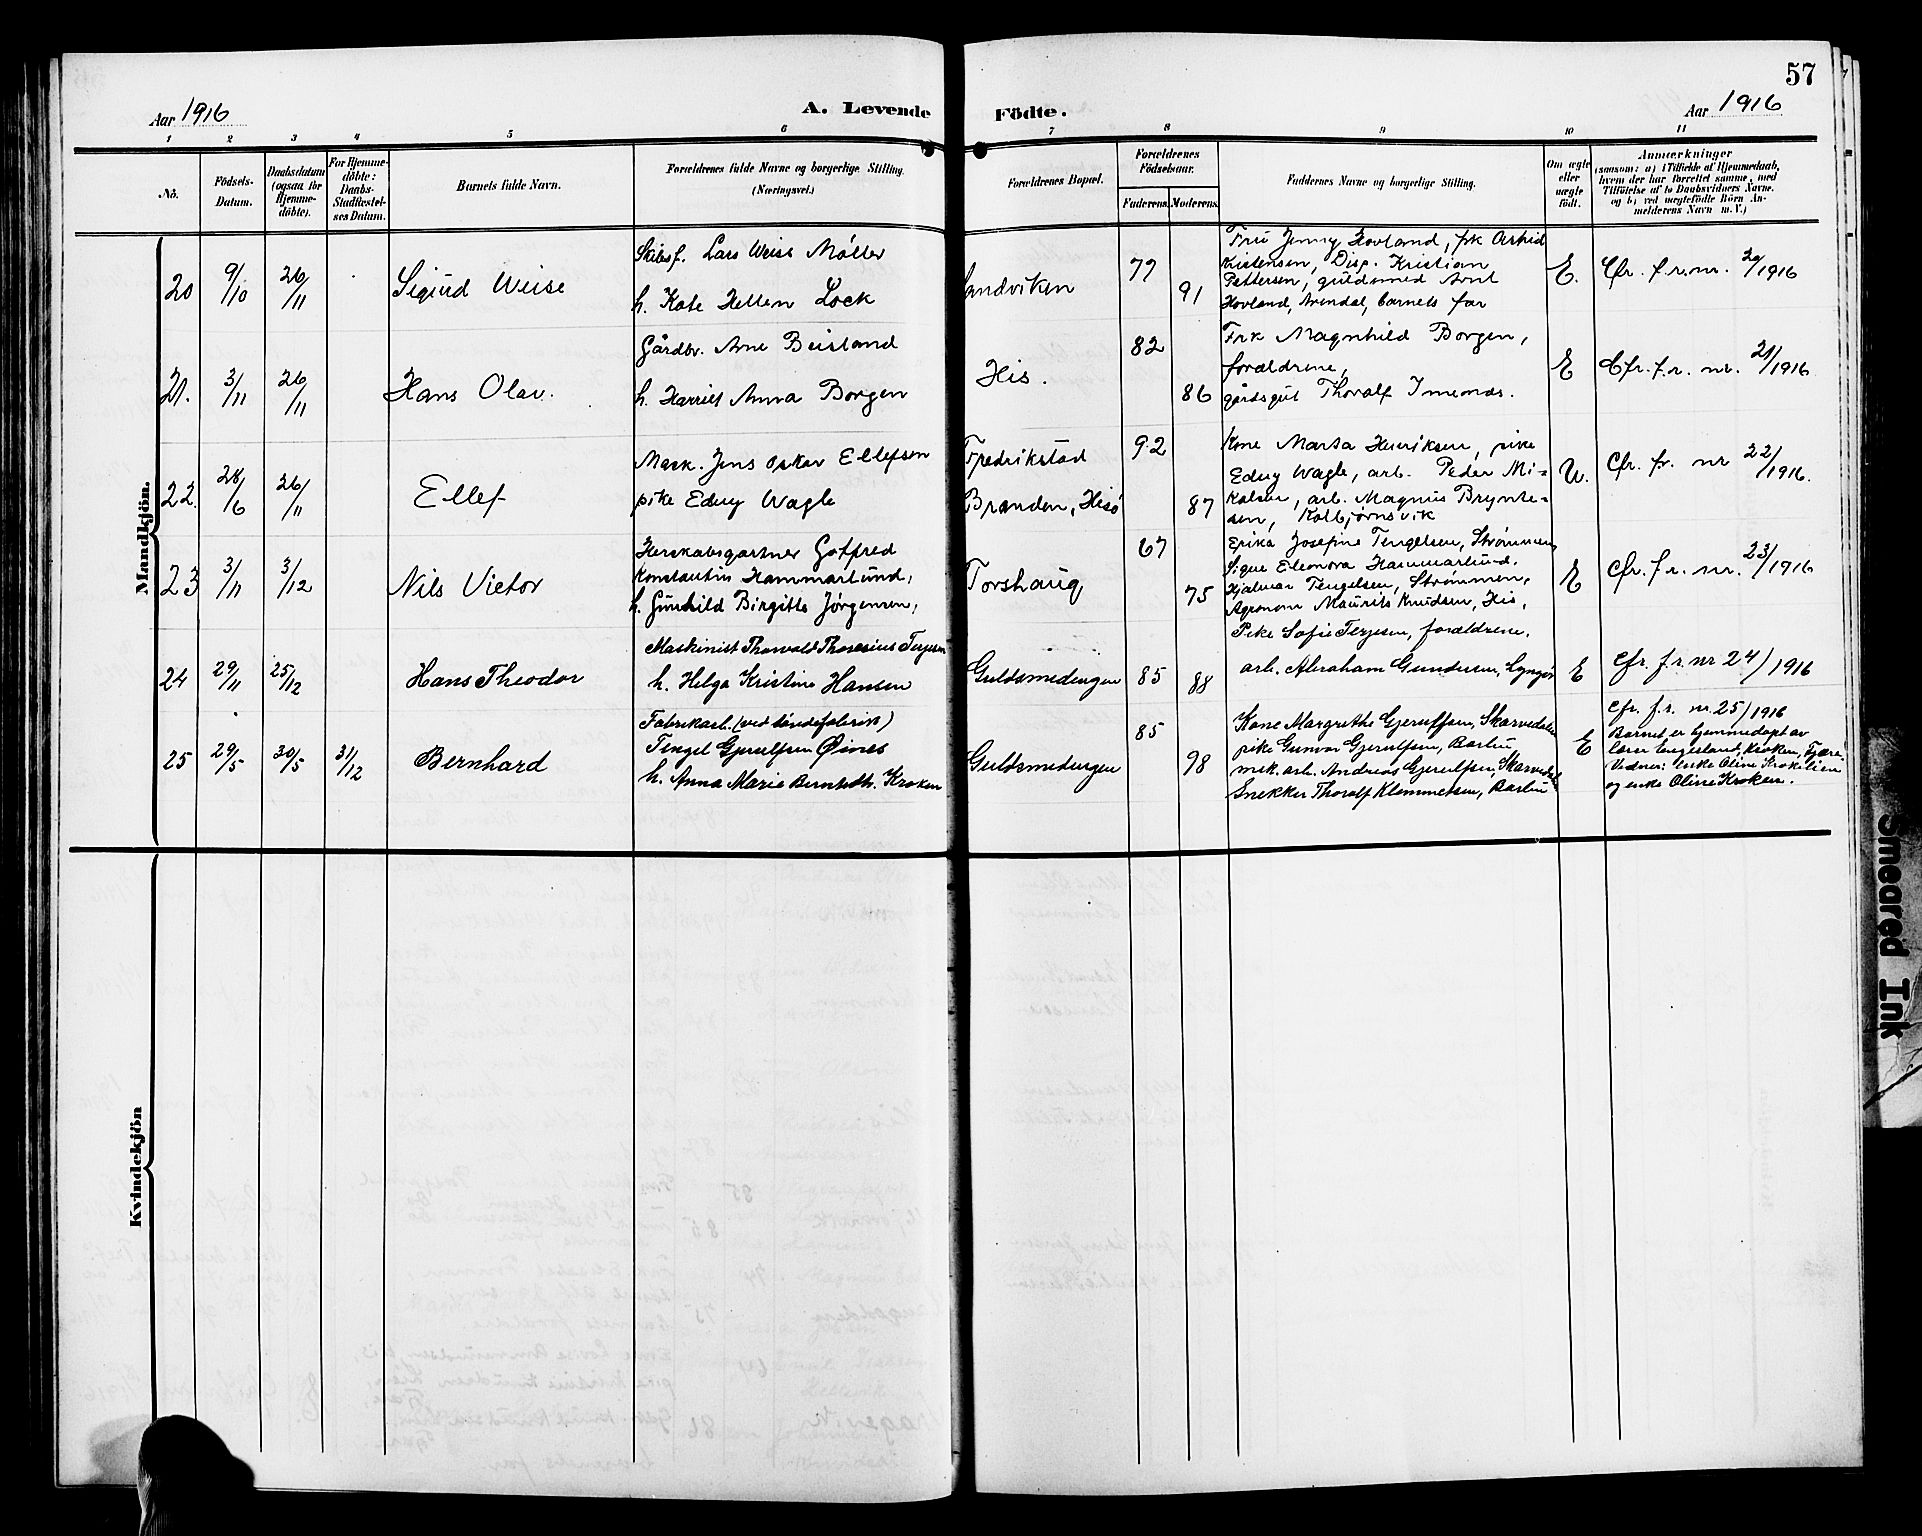 57
Aar 1916
A. Levende
Födte.
Aar 1916
1 2 3 4 5 6 7 8 9 10 11
No.
Födsels-Datum.
Daabsdatum (ogsaa for Hjemme-döbte).
For Hjemme-döbte: Daabs-Stadfæstel-ses Datum.
Barnets fulde Navn.
Forældrenes fulde Navne og borgerlige Stilling. (Næringsvei.)
Forældrenes Bopæl.
Forældrenes Födselsaar.
Faderens. Moderens.
Faddernes Navne og borgerlige Stilling.
Om ægte eller uægte födt.
Anmærkninger
(saasom: a) i Tilfælde af Hjemmedaab, hvem der har forrettet samme, med Tilföielse af to Daabsvidners Navne. og b) ved uægtefödte Börn An-melderens Navn m. V.)
Mandkjön.
20 9/10 26/11 Sigurd Weise
Skibsf. Lars Weise Møller
h. Kate Hellen Lock
Sandviken 77 91
Fru Jenny Hovland, frk Astrid
Kristensen, Disp. Kristian
Pettersen, guldsmed Arnt
Hovland, Arendal, barnets far
E. Cfr. f.r. nr. 20/1916
21. 3/11 26/11 Hans Olav.
Gårdbr. Arne Beisland
h. Harriet Anna Borgen
His. 82 86
Frk Magnhild Borgen,
forældrene,
gårdsgut Thoralf Imenæs.
E Cfr. f.r. nr. 21/1916
22. 28/6 26/11 Ellef
Mask. Jens Oskar Ellefsen
pike Edny Wagle
Fredrikstad
Brænden, Hisø 92 87
Kone Marta Henriksen, pike
Edny Wagle, arb. Peder Mi-
kalsen, arb. Magnus Brynte-
sen, Kolbjørnsvik
U. Cfr. fr. nr 22/1916.
23 3/11 3/12 Nils Victor
Herskabsgartner Gotfred
Konstantin Hammarlund,
h. Gunhild Birgitte Jørgensen,
Torshaug 67 75
Erika Josefine Tengelsen, Strømmen,
Signe Eleonora Hammarlund,
Hjalmar Tengelsen, Strømmen,
Agronom Maurits Knudsen, His,
E Cfr. f.r. nr. 23/1916
24 29/11 25/12 Hans Theodor
Maskinist Thorvald Thoresius Terjesen
h. Helga Kristine Hansen
Guldsmedengen 85 88
Pike Sofie Terjesen, forældrene.
arb. Abraham Gundersen, Lyngør
E Cfr. f.r. nr 24/1916
25 29/5 30/5 31/12 Bernhard
Fabrikarb. (ved tøndefabrik)
Tengel Gjerulfsen Øines
h. Anna Marie Berntsdtr. Kroken
Guldsmedengen 85 98
Kone Margrethe Gjerulfsen, Skarvedalen
pike Gunvor Gjerulfsen, Barbu
mek. arb. Andreas Gjerulfsen, Skarvedalen
Snekker Thoralf Klemmetsen, Barbu
E Cfr. f.r. nr. 25/1916
Barnet er hjemmedøpt av
lærer Engesland, Kroken, Fjære.
Vidner: enke Oline Kroklien
og enke Oline Kroken.
Kvindekjön
Smeared Ink